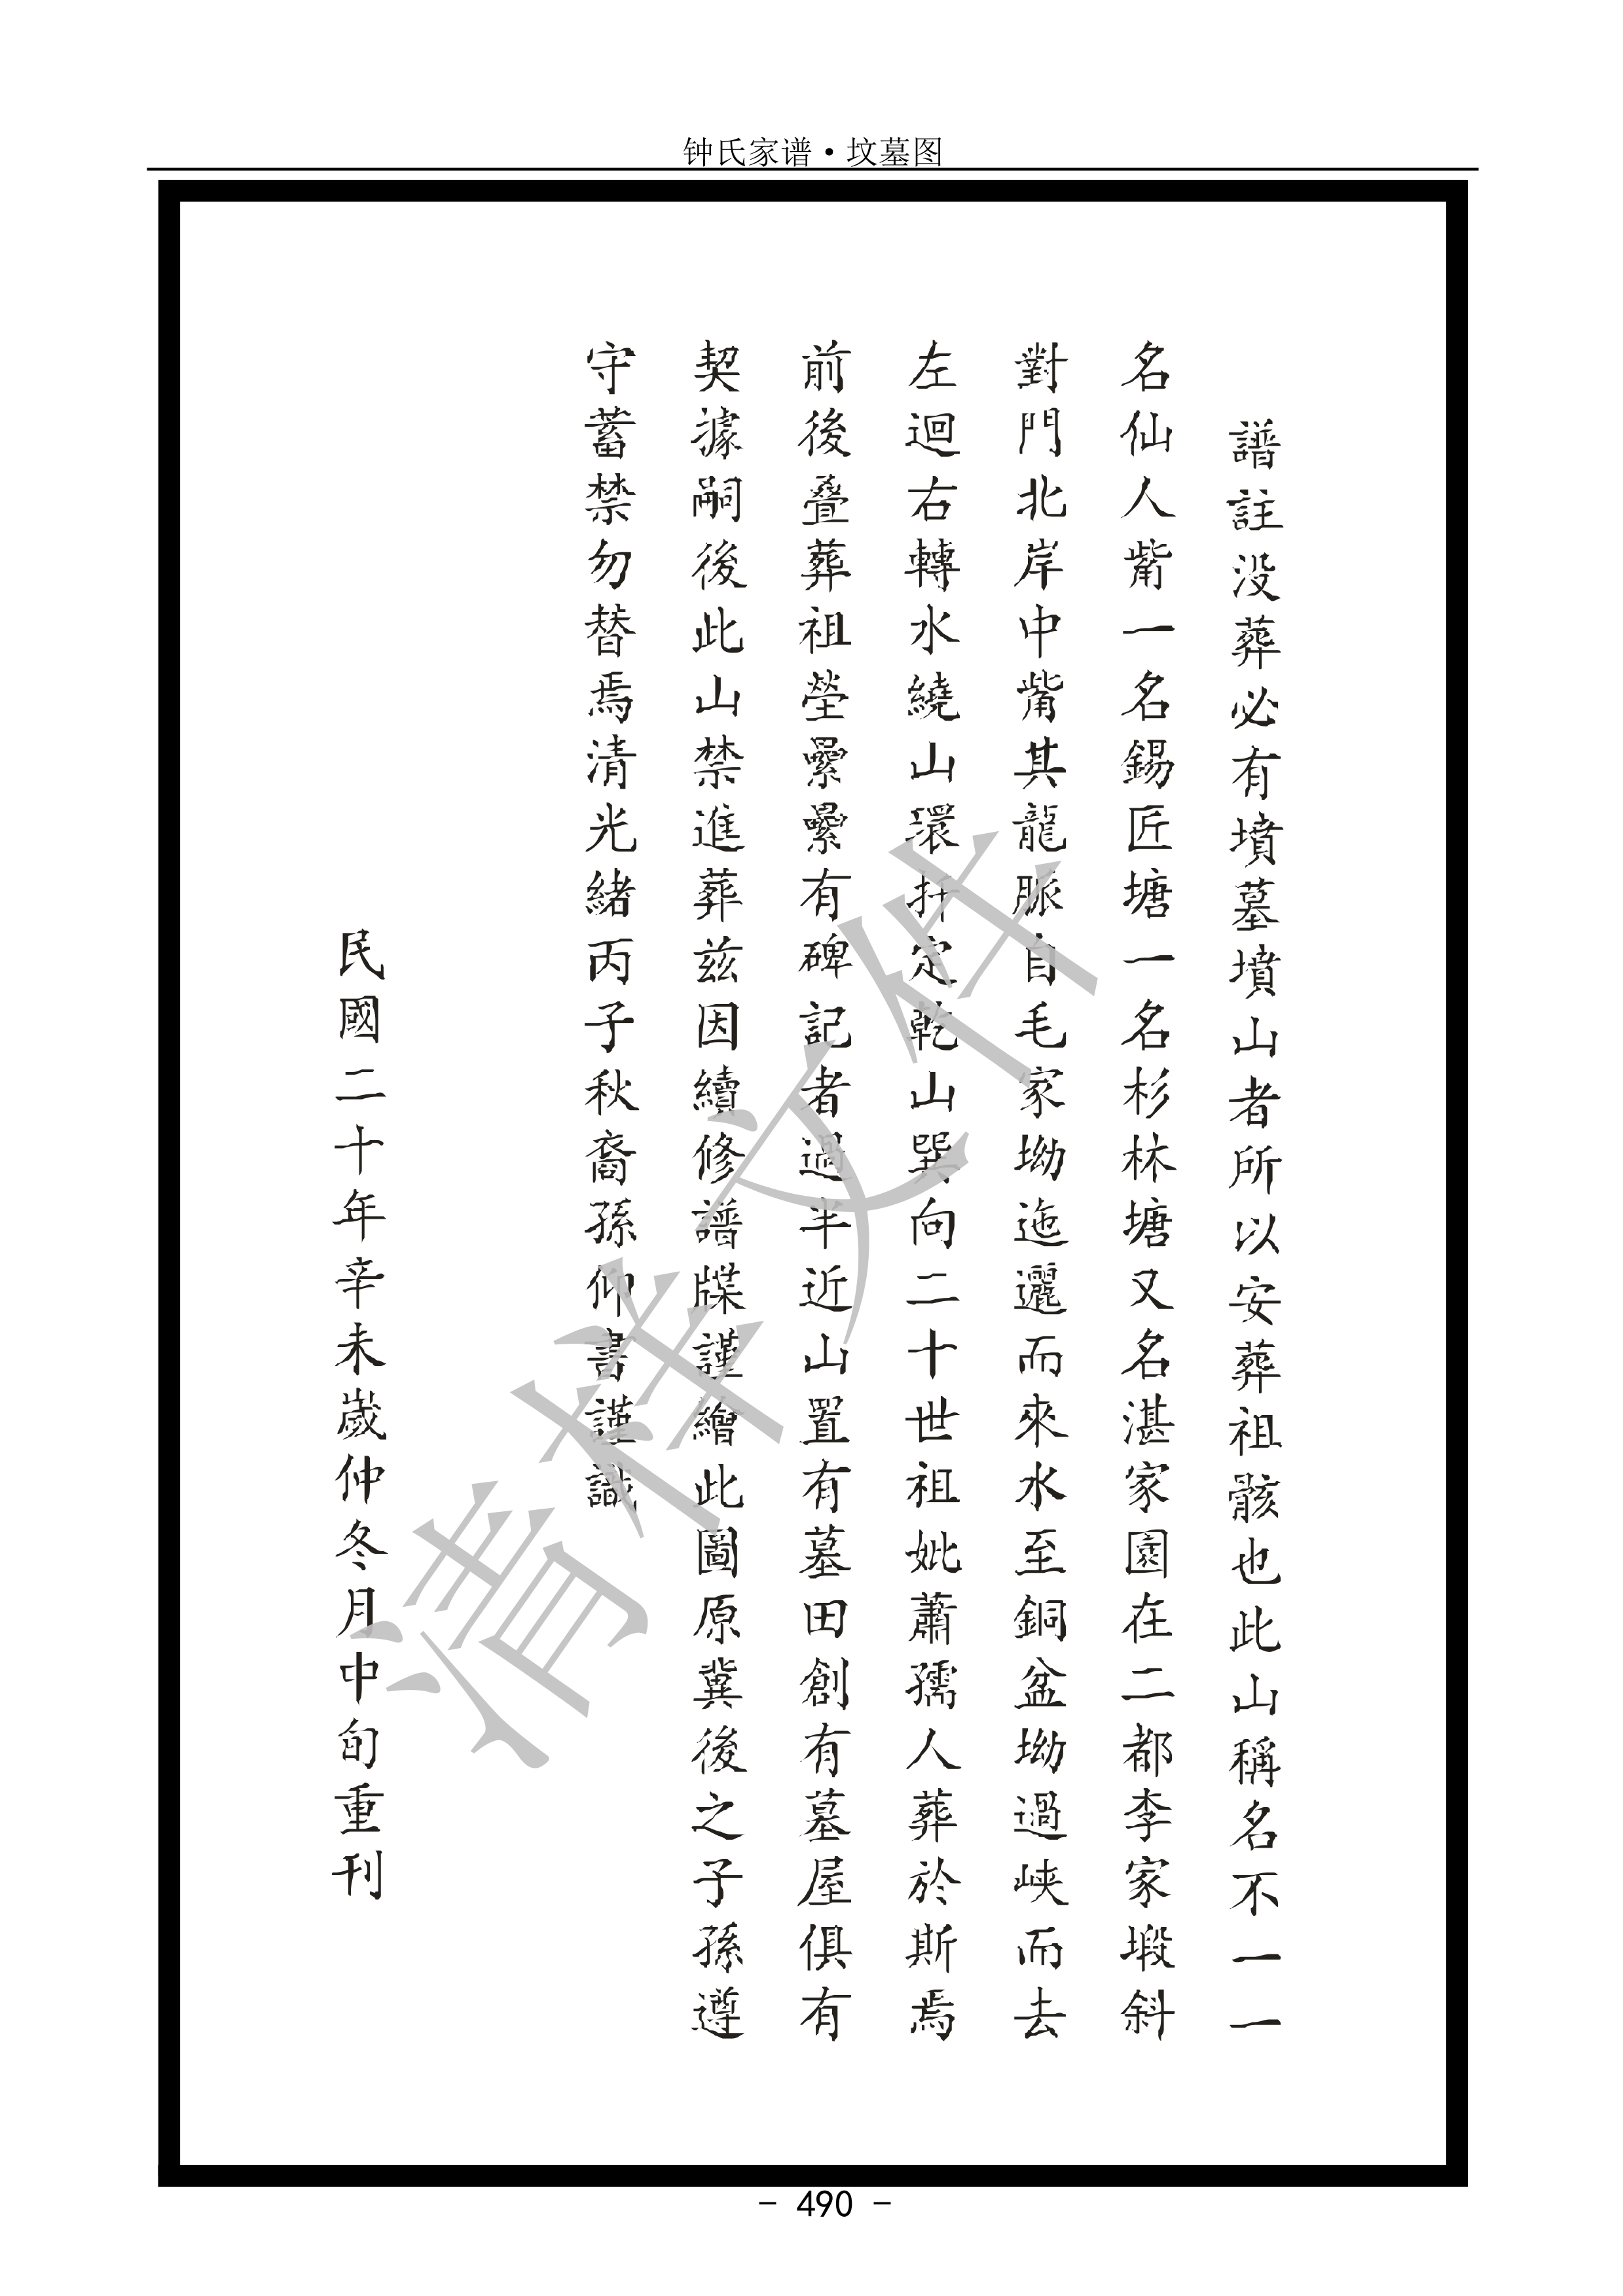 钟氏家谱·坟墓图
譜註没葬必有墳墓墳山者所以安葬祖骸也此山稱名不一一
名仙人觜一名錫匠塘一名杉林塘又名湛家園在二都李家塅斜
對門北岸中觜其龍脈自毛家坳迤邐而來水至銅盆坳過峡而去
左迴右轉水繞山環扦定乾山巽向二十世祖妣蕭孺人葬於斯焉
前後疊葬祖塋纍纍有碑記者過半近山置有墓田創有墓屋俱有
契據嗣後此山禁進葬兹因續修譜牒謹繪此圖原冀後之子孫遵
守蓄禁勿替焉清光緒丙子秋裔孫仰書謹識
民國二十年辛未嵗仲冬月中旬重刊
清样文件
- 490 -